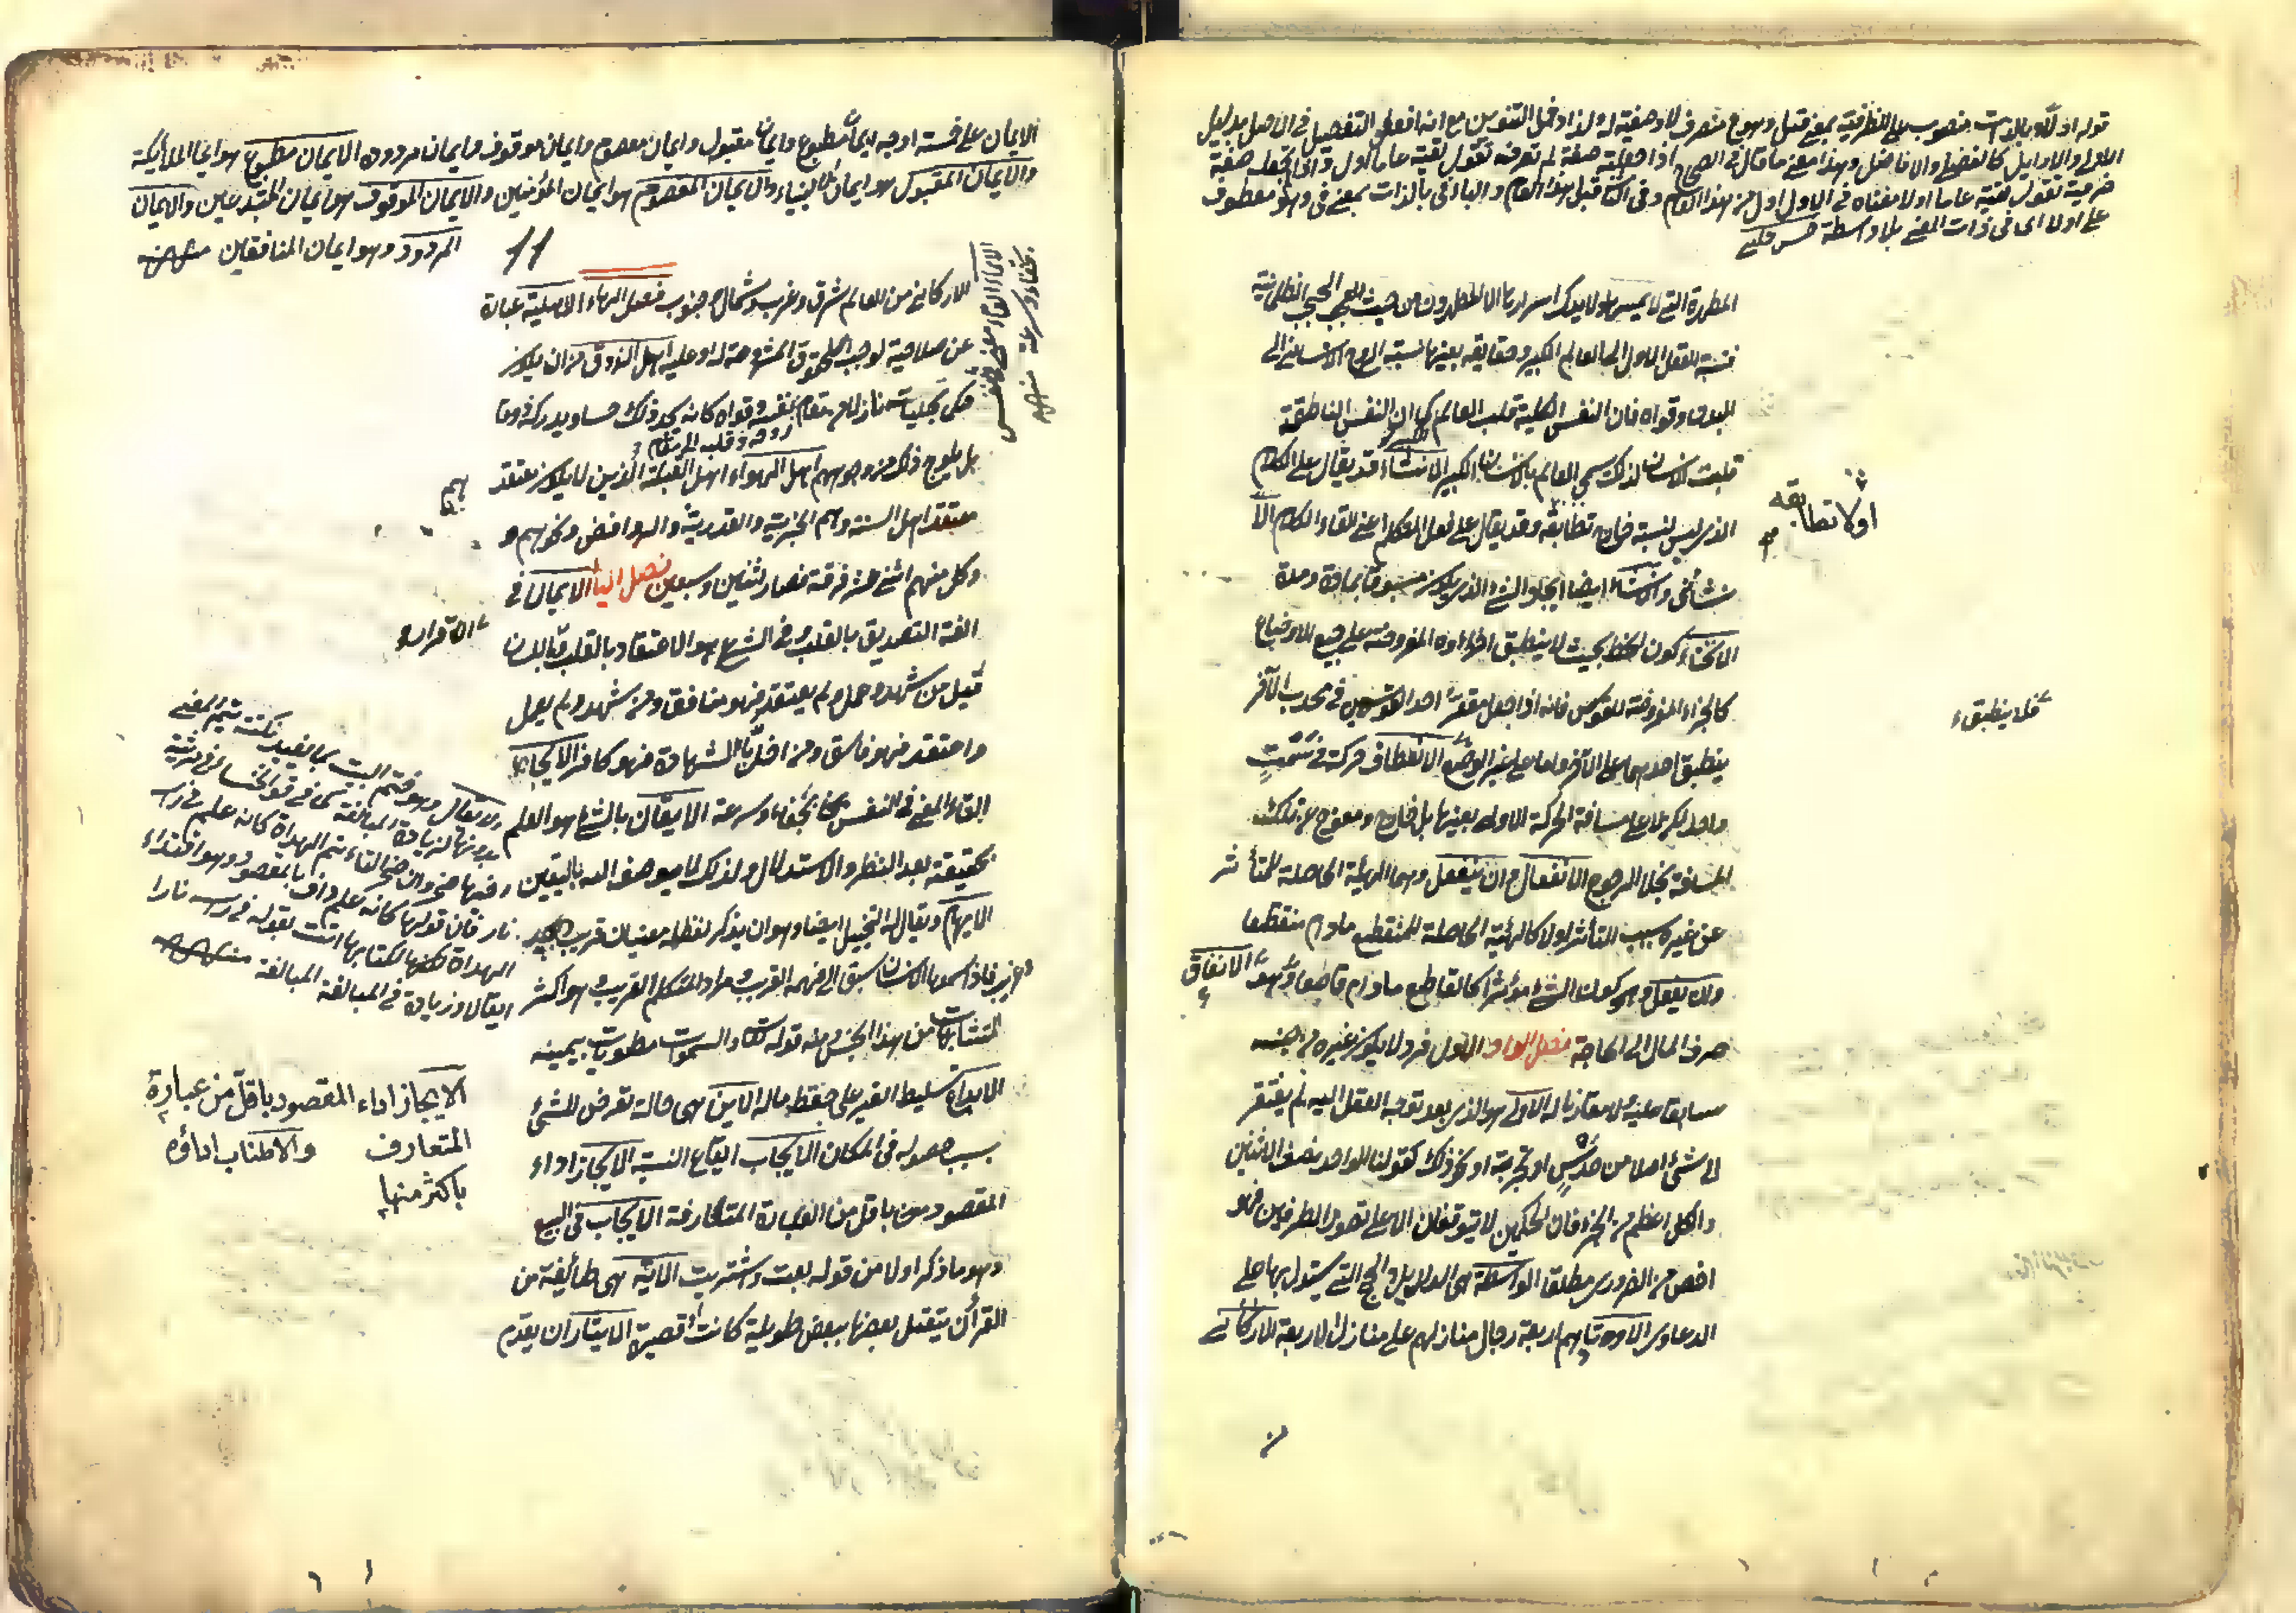 قوله اولا وبالذات منصوب على الظرفية بمعنى قبل وهو ح منصرف لا وصفية له ولذا دخل التنوين مع انه افعل التفضيل في الاصل بدليل
الاولى والاوايل كالفضلى والافاضل وهذا معنى ما قال في الصحاح اذا جعلته صفة لم تصرفه تقول لقيته عاما اول واذا لم تجعله صفة
صرفته تقول لقيته عاما اولا معناه في الاول اول من هذا العام وفى الثانى قبل هذا العام والباء فى بالذات بمعنى فى وهو معطوف
على اولا اى فى ذات المعنى بلا واسطة حسن چلبى
المطهرة التى لا يمسها ولا يدرك اسرارها الا المطهرون من الحجب الظلمانية
فنسبة العقل الاول الى العالم الكبير وحقايقه بعينها نسبة الروح الانسانى الى
البدن وقواه فان النفس الكلية قلب العالم كما ان النفس الناطقة
قلب الانسان لذلك سمى العالم بالانسان الكبير الانشاء قد يقال على الكلام
الذى ليس لنسبته خارج تطابقه وقد يقال على فعل المتكلم اعنى القاء الكلام الا
اولا تطابقه
نشائى والانشاء ايضا ايجاد الشئ الذى يكون مسبوقا بمادة ومدة
الانحناء كون الخط بحيث لا ينطبق اجزاءه المفروضة على جميع الاوضاع
كالاجزاء المفروضة للقوس فانه اذا جعل مقعر احد القوسين فى محدب الآخر
فلا ينطبق
ينطبق احدهما على الآخر واما على غير الوضع الانعطاف حركة فى سمت
واحد لكن لا على مسافة الحركة الاولى بعينها بل خارج ومعوج عن تلك
المسافة بخلاف الرجوع الانفعال وان ينفعل وهما الهيئة الحاصلة للمتأثر
عن غيره بسبب التأثير اولا كالهيئة الحاصلة للمنقطع ما دام منقطعا
وان يفعل وهو كون الشئ مؤثرا كالقاطع ما دام قاطعا وهو الانفاق
صرف المال الى الحاجة فصل الواو الاول فرد لا يكون غيره من جنسه
سابقا عليه ولا مقارنا له الاولى هو الذى بعد توجه العقل اليه لم يفتقر
الى شئ اصلا من حدس او تجربة او نحو ذلك كقولنا الواحد نصف الاثنين
والكل اعظم من الجزء فان الحكمين لا يتوقفان الا على تصور الطرفين فهو
اخص من الضرورى مطلقا الواسطة هى الدليل والحجج التى يستدل بها على
الدعاوى الاوتاد هم اربعة رجال منازلهم على منازل الاربعة الاركان
الايمان على خمسة اوجه ايمان مطبوع وايمان مقبول وايمان معصوم وايمان موقوف وايمان مردود الايمان مطبوع هو ايمان الملائكة
والايمان المقبول هو ايمان الانبياء والايمان المعصوم هو ايمان المؤمنين والايمان الموقوف هو ايمان المبتدعين والايمان
المردود وهو ايمان المنافقين منه
11
الاركان من العالم شرق وغرب وشمال وجنوب فصل الهاء الاهلية عبارة
عن صلاحية لوجوب الحقوق المشروعة له او عليه اهل الذوق من ان يكون
حكم تجليات نازلا من مقام نفسه وقواه كانه يجد ذلك حسا ويدركه ذوقا
روحه وقلبه الى مقام
بل يلوح ذلك من وجوههم اهل الهواء اهل القبلة الذين لا يكون معتقدهم
معتقد اهل السنة وهم الجبرية والقدرية والروافض ونحوهم و
وكل منهم اثنى عشر فرقة فصار اثنين وسبعين فصل الياء الايمان فى
اللغة التصديق بالقلب وفى الشرع هو الاعتقاد بالقلب واللسان
والاقرار
قيل من شهد وعمل ولم يعتقد فهو منافق ومن شهد ولم يعمل
واعتقد فهو فاسق ومن اخل بالشهادة فهو كافر الايحاء
القاء المعنى فى النفس بخفاء وسرعة الايقان بالشئ هو العلم
بحقيقته بعد النظر والاستدلال ولذلك لا يوصف الله باليقين
الايهام ويقال له التخييل ايضا وهو ان يذكر لفظ له معنيان قريب وبعيد
فاذا سمعها الانسان سبق الى فهمه القريب ومراد المتكلم الغريب وهو اكثر
المتشابهات من هذا الجنس ومنه قوله تعالى والسموات مطويات بيمينه
الايداع تسليط الغير على حفظ ماله الاين هى حالة تعرض للشئ
بسبب حصوله فى المكان الايجاب ايقاع النسبة الايجاز اداء
المقصود من باقل من العبارة المتعارفة الايجاب فى البيع
وهو ما ذكر اولا من قوله بعت واشتريت الآية هى طائفة من
القرآن يتصل بعضها ببعض طويلة كانت او قصيرة الايثار ان يقدم
الايغال وهو ختم البيت بما يفيد نكتة يتم المعنى
بدونها لزيادة المبالغة كما فى قول الخنساء فى مرثية
اخيها صخر وان صخرا لتأتم الهداة كانه علم فى رأسه
نار فان قولها كانه علم واف بالمقصود وهو اقتداء
الهداة لكنها اتت بقوله فى رأسه نارا
ايغالا وزيادة فى المبالغة منه
الايجاز اداء المقصود باقل من عبارة
المتعارف والاطناب اداؤه
باكثر منها